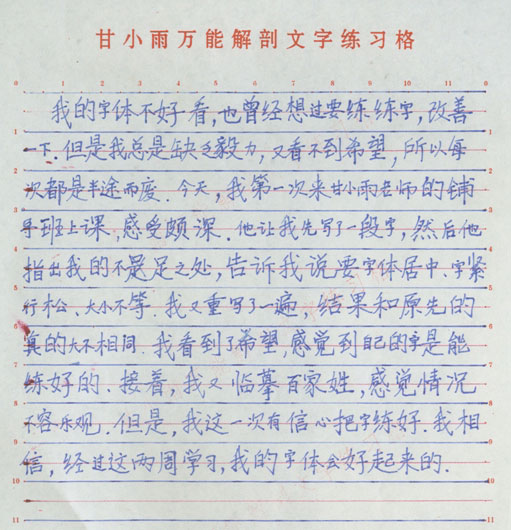 甘小雨万能解剖文字练习格
0 1 2 3 4 5 6 7 8 9 10 11 0
我的字体不好看,也曾经想过要练练字,改善
1 1
一下.但是我总是缺乏毅力,又看不到希望,所以每
2 2
次都是半途而废.今天,我第一次来甘小雨老师的辅
3 3
导班上课,感受颇深.他让我先写了一段字,然后他
4 4
指出我的不是足之处,告诉我说要字体居中.字紧
5 5
行松、大小不等.我又重写了一遍,结果和原先的
6 6
真的大不相同.我看到了希望,感觉到自己的字是能
7 7
练好的.接着,我又临摹百家姓,感觉情况
8 8
不容乐观.但是,我这一次有信心把字练好.我相
9 9
信,经过这两周学习,我的字体会好起来的.
10 10
11 11